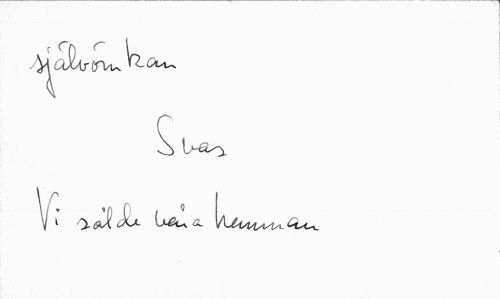 självömkan
Svas
Vi sålde våra hemman